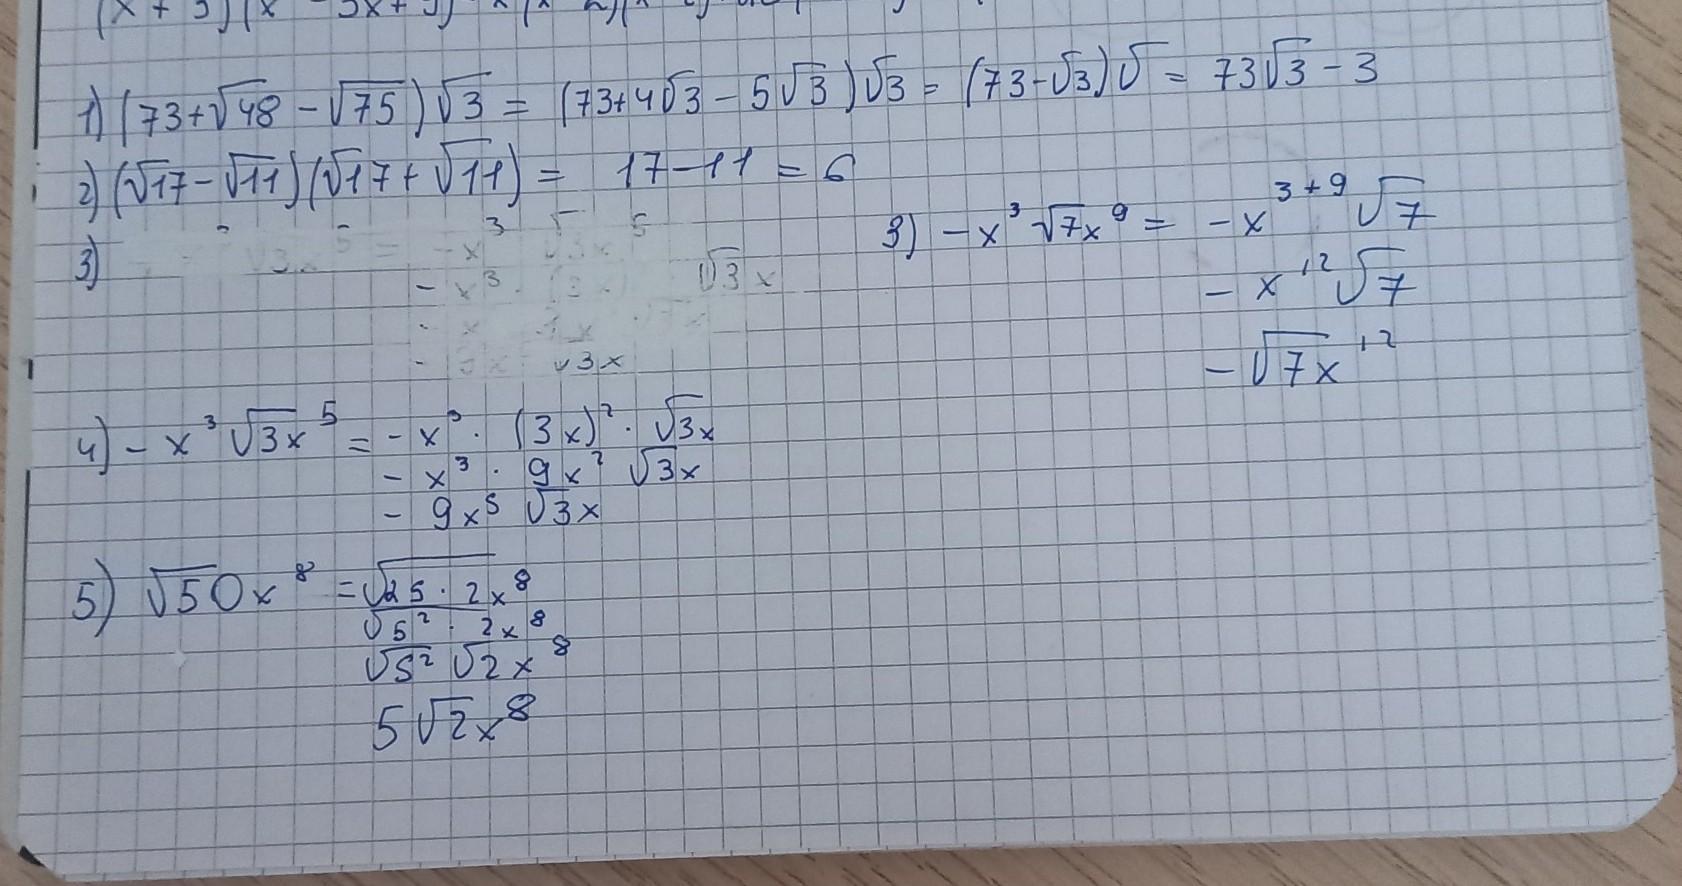 1) (73+√48 -√75)√3 = (73+4√3 - 5√3)√3 = (73-√3)√ = 73√3 - 3
2) (√17-√11)(√17+√11) = 17-11 = 6
3)
3) -x³ √7x⁹ = -x³⁺⁹ √7
- x¹² √7
- √7x¹²
- x³ √3 x
√3x
4) - x³ √3x⁵ = - x³ · (3x)² · √3x
- x³ · 9x² √3x
- 9x⁵ √3x
5) √50x⁸ = √25 · 2x⁸
√5² · 2x⁸
√5² √2x⁸
5√2x⁸